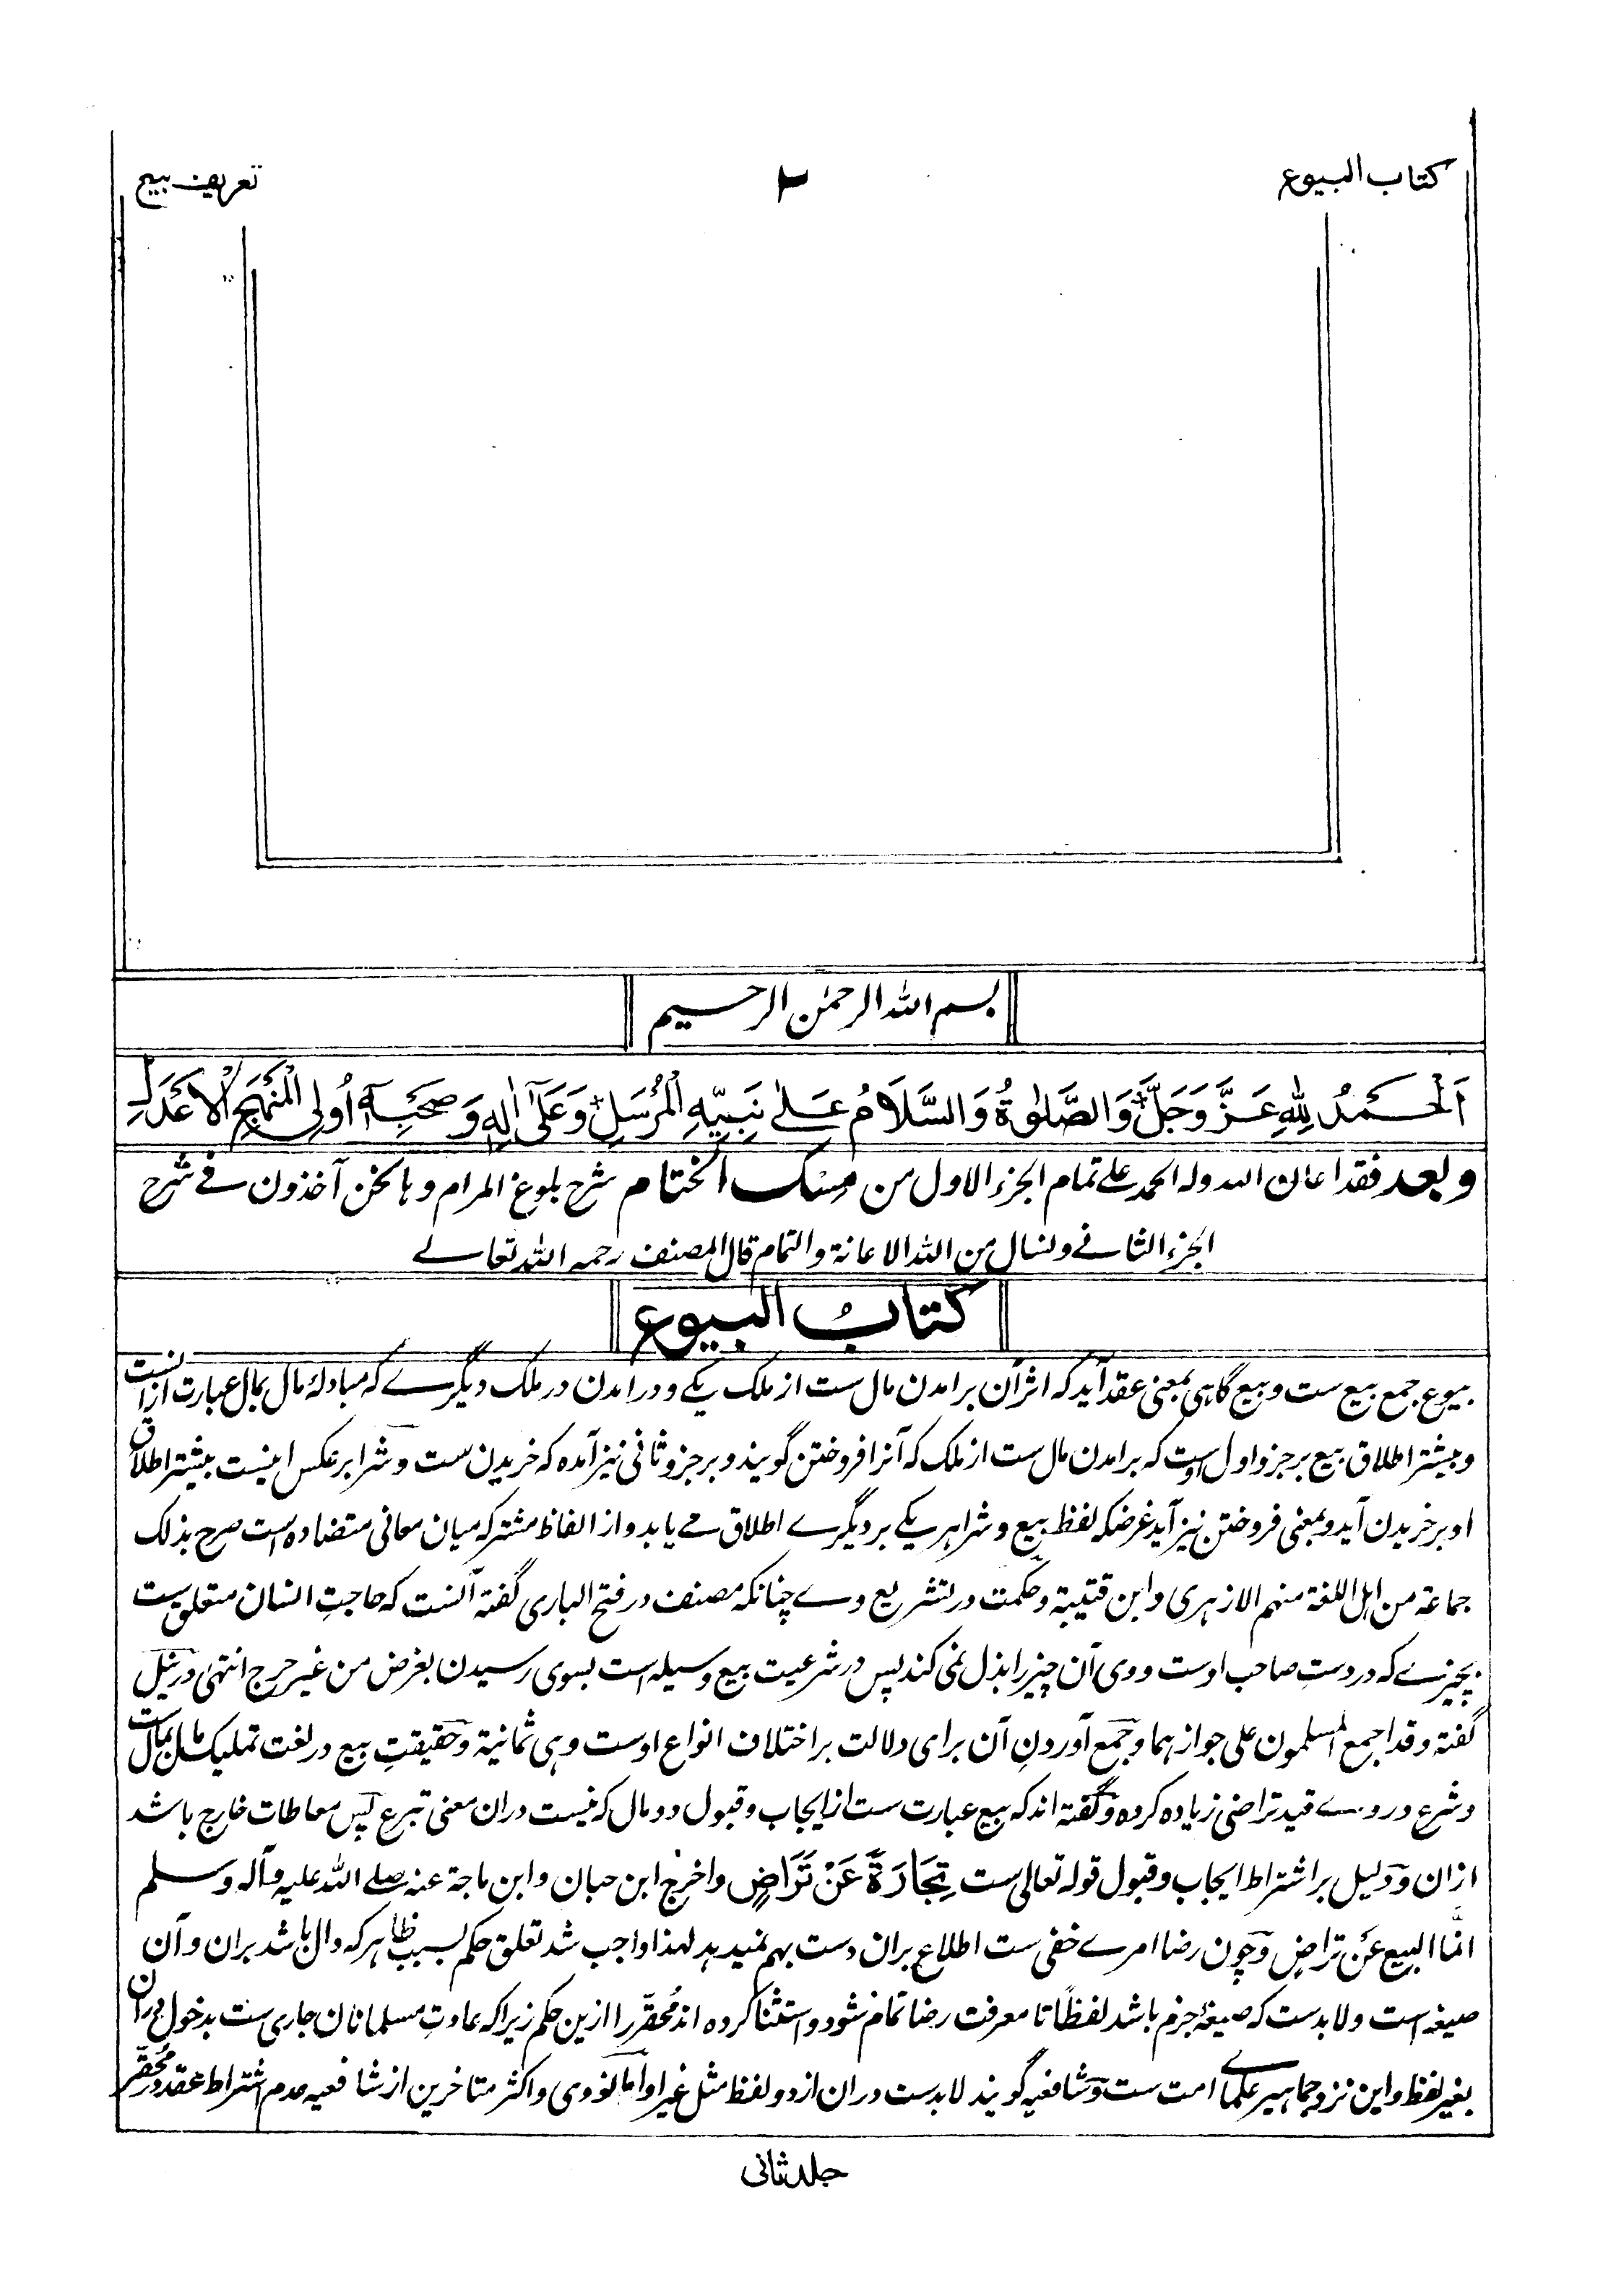 کتاب البیوع
۲
تعریف بیع
بسم الله الرحمٰن الرحیم
اَلْحَمْدُ لِلّٰهِ عَزَّ وَجَلَّ وَالصَّلٰوةُ وَالسَّلَامُ عَلٰی نَبِیِّهِ الْمُرْسَلِ وَعَلٰٓی اٰلِهٖ وَصَحْبِهٖٓ اُولِی الْمَنْهَجِ الْاَعْدَلِ
وبعد فقد اعان الله وله الحمد علی تمام الجزء الاول من مسک الختام شرح بلوغ المرام وها نحن آخذون فے شرح
الجزء الثانے ونسال من الله الاعانة والتمام قال المصنف رحمه الله تعالے
کتابُ البیوع
بیوع جمع بیع ست و بیع گاہی بمعنی عقد آید کہ اثر آن برامدن مال ست از ملک یکے و درامدن در ملک دیگرے کہ مبادلۂ مال بمال عبارت ازانست
و بیشتر اطلاق بیع بر جزو اول اوست کہ برامدن مال ست از ملک کہ آنرا فروختن گویند و بر جزو ثانی نیز آمدہ کہ خریدن ست و شرا برعکس اینست بیشتر اطلاق
او بر خریدن آید و بمعنی فروختن نیز آید غرضکہ لفظ بیع و شرا ہر یکے بر دیگرے اطلاق مے یابد و از الفاظ مشترکہ میان معانی متضادہ است صرح بذلک
جماعة من اہل اللغة منہم الازہری و ابن قتیبة و حکمت در تشریع وے چنانکہ مصنف در فتح الباری گفتہ آنست کہ حاجتِ انسان متعلق ست
بچیزے کہ در دستِ صاحب اوست و وی آن چیز را بذل نمی کند پس در شرعیت بیع وسیلہ است بسوی رسیدن بغرض من غیر حرج انتہیٰ در نیل
گفتہ و قد اجمع المسلمون علی جوازہما و جمع آوردنِ آن برای دلالت بر اختلاف انواع اوست وہی ثمانیة و حقیقتِ بیع در لغت تملیک مال بمال ست
و شرع در وے قید تراضی زیادہ کردہ و گفتہ اند کہ بیع عبارت ست از ایجاب و قبول در مال کہ نیست دران معنی تبرع پس معاطات خارج باشد
ازان و دلیل بر اشتراط ایجاب و قبول قولہ تعالی ست تِجَارَةً عَنْ تَرَاضٍ و اخرج ابن حبان و ابن ماجة عنہ صلے اللہ علیہ وآلہ وسلم
انَّما البیع عَن تراضٍ و چون رضا امرے خفی ست اطلاع بران دست بہم نمیدہد لہذا واجب شد تعلق حکم بسبب ظاہر کہ دال باشد بران و آن
صیغہ است و لابدست کہ صیغۂ جزم باشد لفظًا تا معرفت رضا تمام شود و استثنا کردہ اند مُحقّر را ازین حکم زیرا کہ عادتِ مسلمانان جاری ست بدخول دران
بغیر لفظ و این نزد جماہیر علمائے امت ست و شافعیہ گویند لابدست دران از دو لفظ مثل غیر او اما نووی و اکثر متاخرین از شافعیہ عدم اشتراط عقد در مُحقّر
جلد ثانی